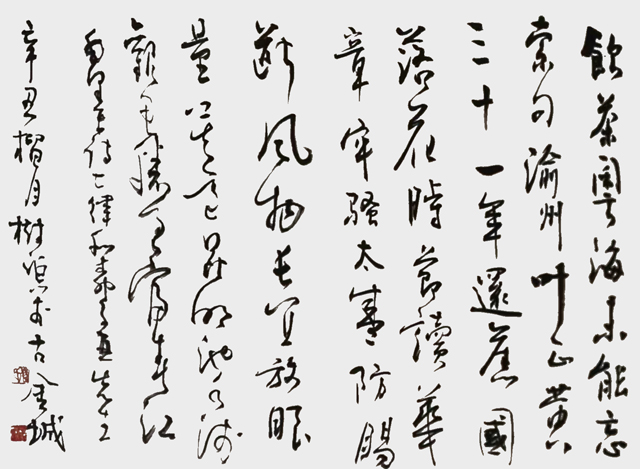 飲茶粵海未能忘
索句渝州叶正黃
三十一年還舊國
落花時節讀華
章牢騷太盛防腸
斷風物長宜放眼
量莫道昆明池水淺
觀魚勝過富春江
毛澤東詩七律和柳亞子先生
辛丑榴月樹書古金城